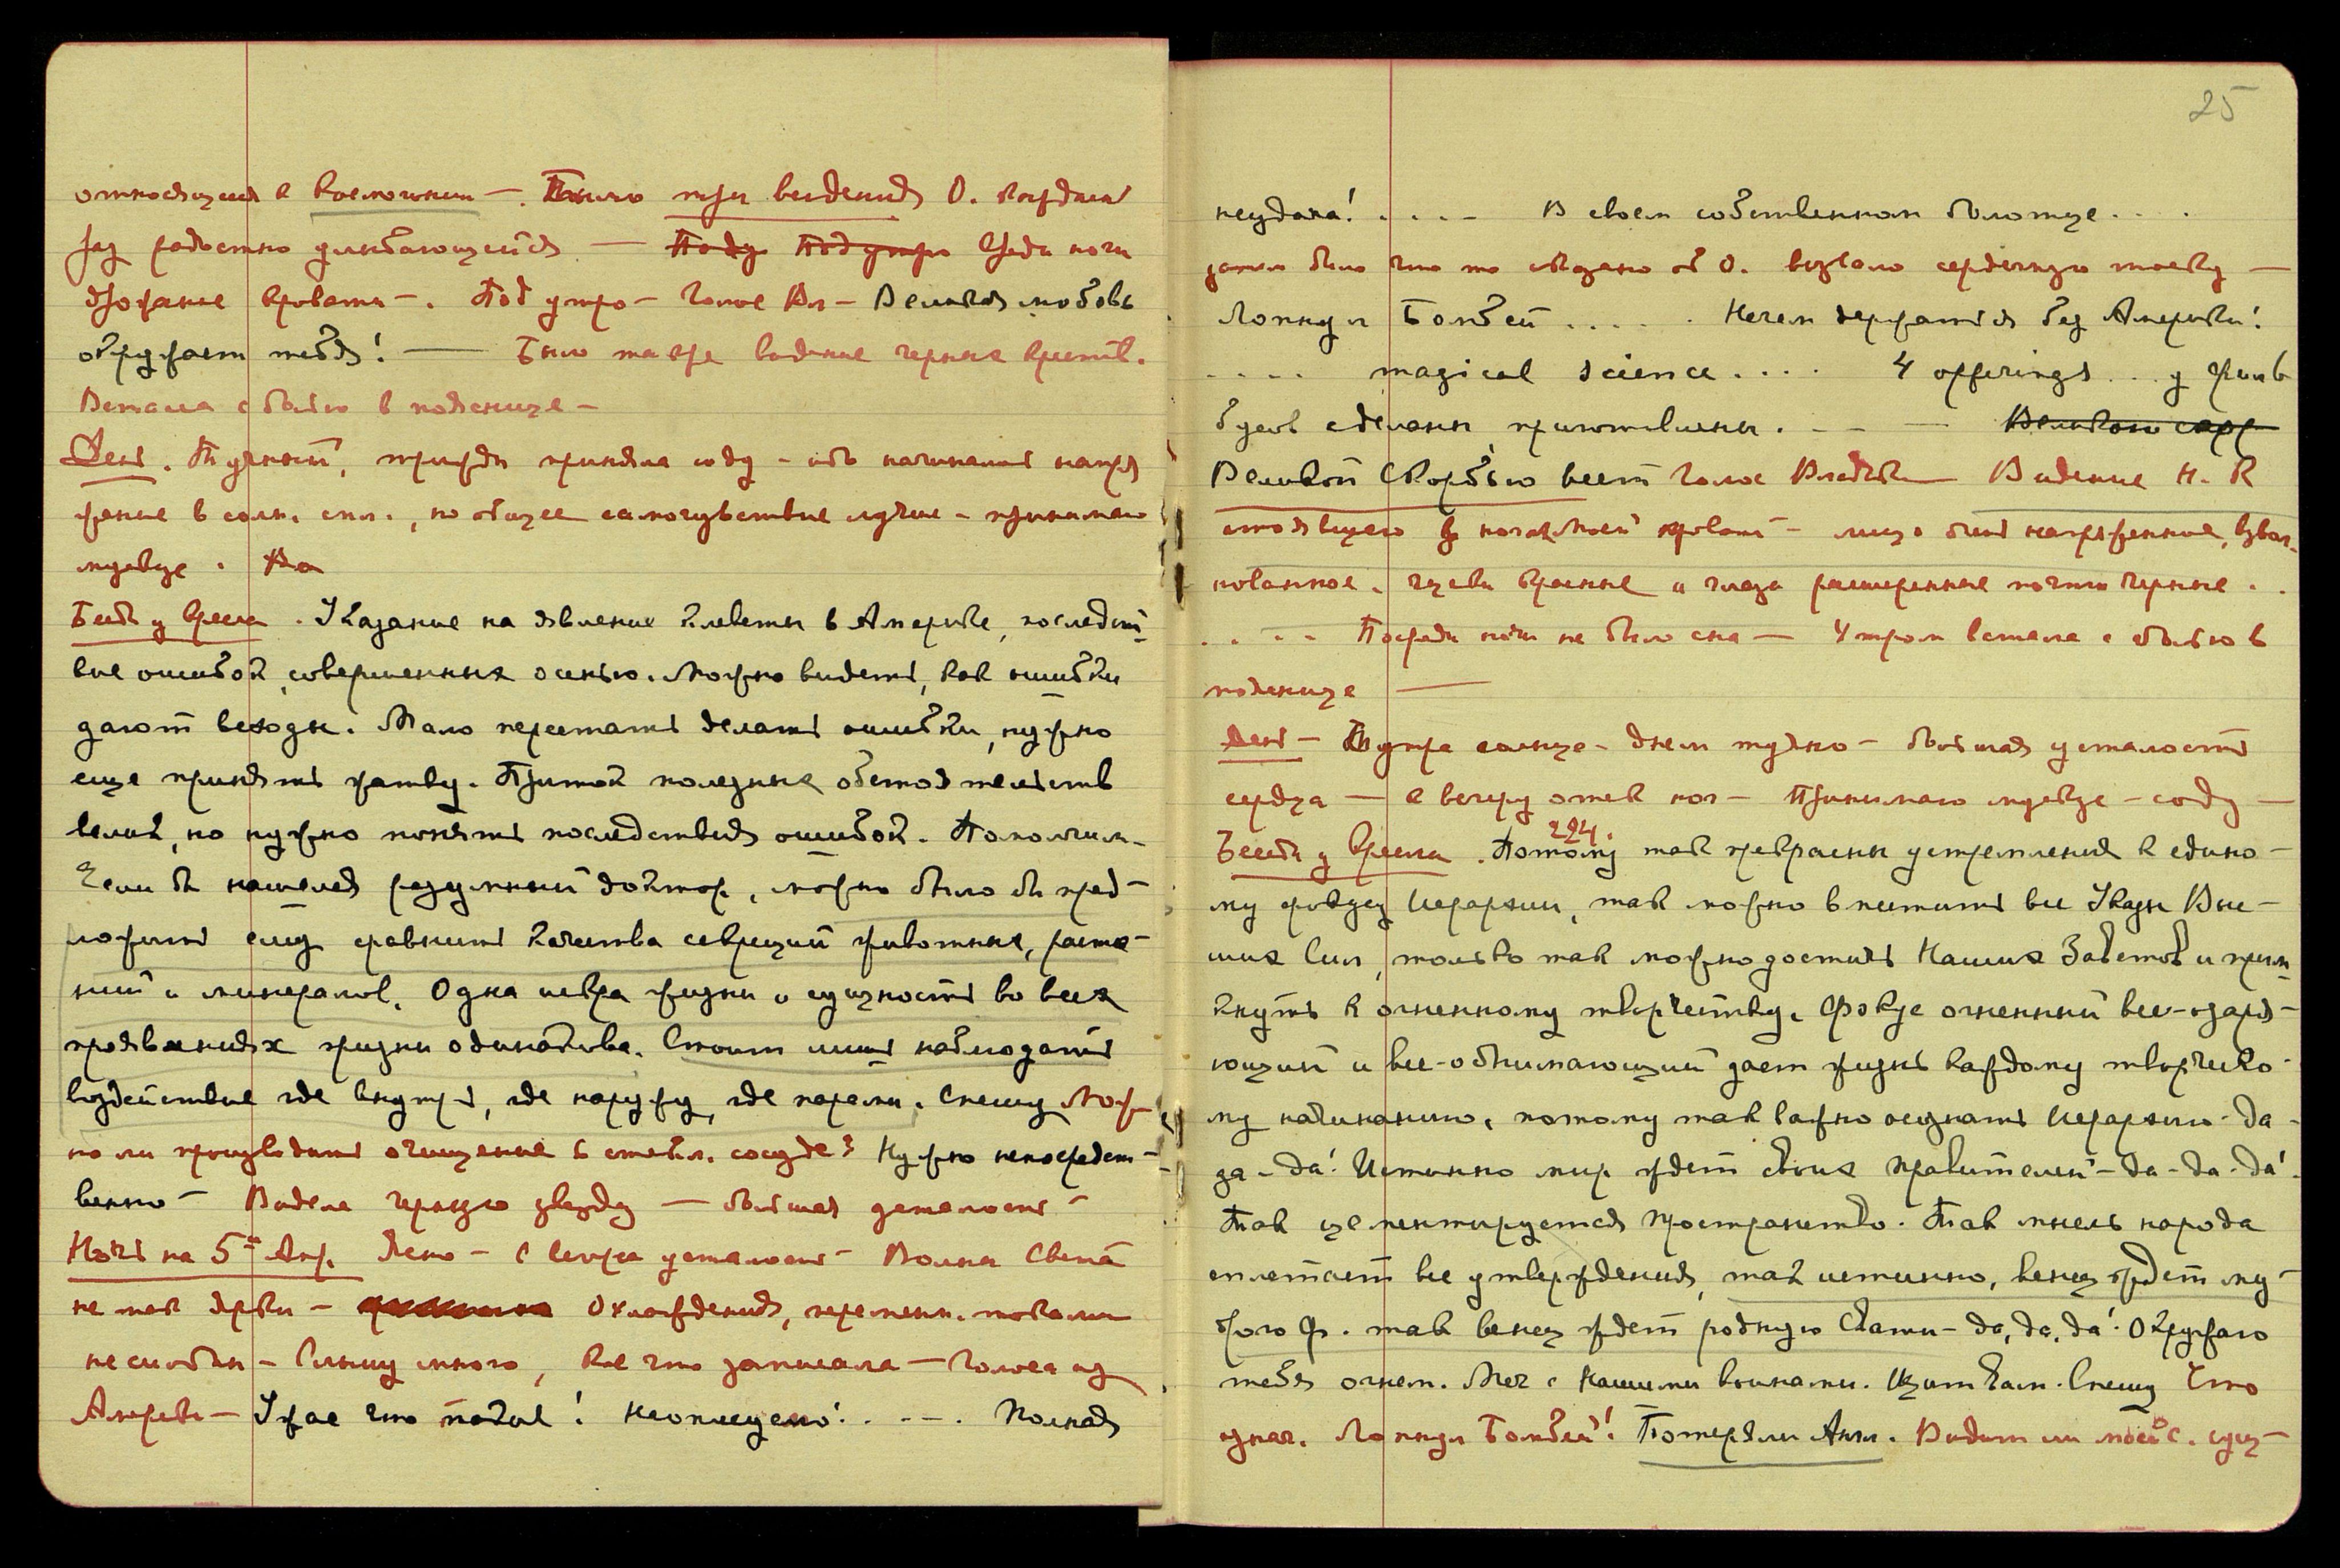 относящися к космогонии —. Было три видения О. каждый
раз радостно улыбающейся — Поду Под утро Среди ночи
дрожание кровати —. Под утро — Голос Вл — Великая любовь
окружает тебя! — Было также видение черных крестов.
Встала с болью в пояснице —
День. Тучный, трижды приняла соду — ибо начиналось напря
жение в солн. спл., но общее самочувствие лучше — принимаю
мускус. Во
Беседа у кресла. Указание на явление клеветы в Америке, последст-
вие ошибок, совершенных осенью. Можно видеть, как ошибки
дают всходы. Мало перестать делать ошибки, нужно
еще принять жатву. Приток полезных обстоятельств
велик, но нужно понять последствия ошибок. Помолчим.
Если бы нашелся разумный доктор, можно было бы пред-
ложить ему сравнить качества секреций животных, расте-
ний и минералов. Одна искра жизни и сущность во всех
проявлениях жизни одинакова. Стоит лишь наблюдать
воздействие где внутрь, где наружу, где парами. Спешу Мож-
но ли производить очищение в стекл. сосуде? Нужно непосредст-
венно — Видела черную звезду — большая усталость —
Ночь на 5-ое Апр. Ясно — с вечера усталость — Волны Света
не так ярки — Охлаждения, перемен. токами
не сильны — Слышу много, кое что записала — Голоса из
Америки — Ужас что такое! Неоплещено! . . - . Полная
25
неудача! . . . . В своем собственном болотце . . .
затем было что то сказано об О. вызвало сердечную тоску —
Лопнул Бомбей . . . . . Нечем держаться без Америки!
. . . . magical science . . . . 4 offerings . . . у
будов сделаны, приготовлены. — — — Великою скорб
Великой Скорбью веет Голос Владыки Видение Н. К
стоявшего в ногах моей кровати — лицо было напряженное, взвол-
нованное, губы красные и глаза расширенные почти черные . .
. . - - Посреди ночи не было сна — Утром встала с болью в
пояснице —
День — С утра солнце — днем тучно — большая усталость
сердца — к вечеру отек ног — Принимаю мускус — соду —
224.
Беседа у кресла. Потому так прекрасны устремления к едино-
му фокусу Иерархии, так можно впитать все Указы Выс-
ших Сил, только так можно достичь Наших Заветов и прим
кнуть к огненному творчеству. Фокус огненный все-озаря-
ющий и все-обнимающий дает жизнь каждому творческо-
му начинанию, потому так важно осознать Иерархию. Да -
да - да! Истинно мир ждет своих правителей — да - да - да!
Так цементируется пространство. Так мысль народа
сплетает все утверждения, так истинно, венец ждет му-
дрого Ф. так венец ждет родную Свати — да, да, да! Окружаю
тебя огнем. Меч с Нашими воинами. Щит Вам. Спешу Что
узнач. Лопнул Бомбей! Потеряли Англ. Видит ли моей с. сущ-